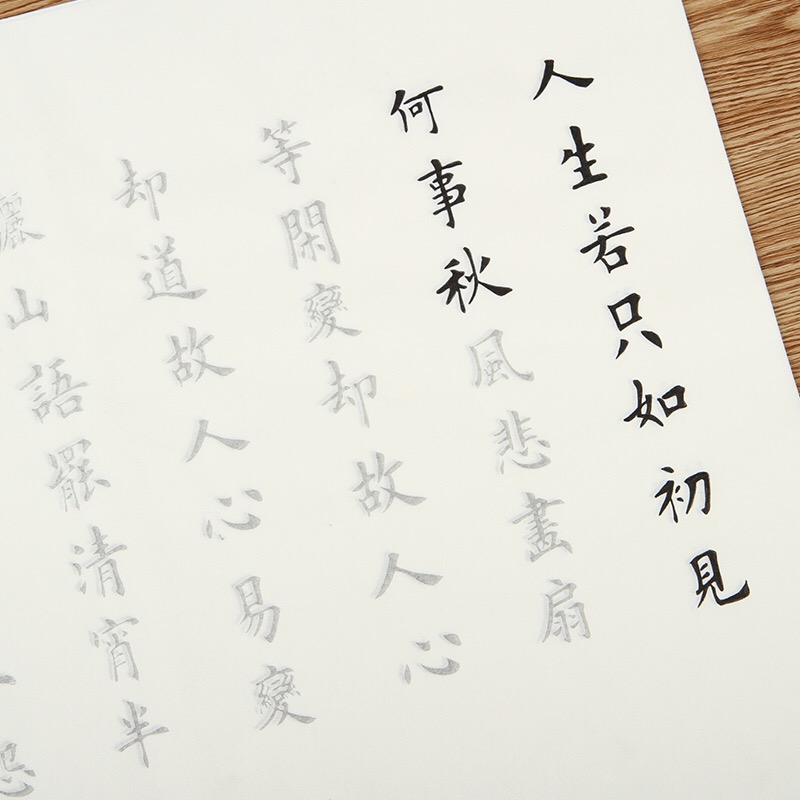 人生若只如初見
何事秋風悲畫扇
等閑變却故人心
却道故人心易變
驪山語罷清宵半
怨